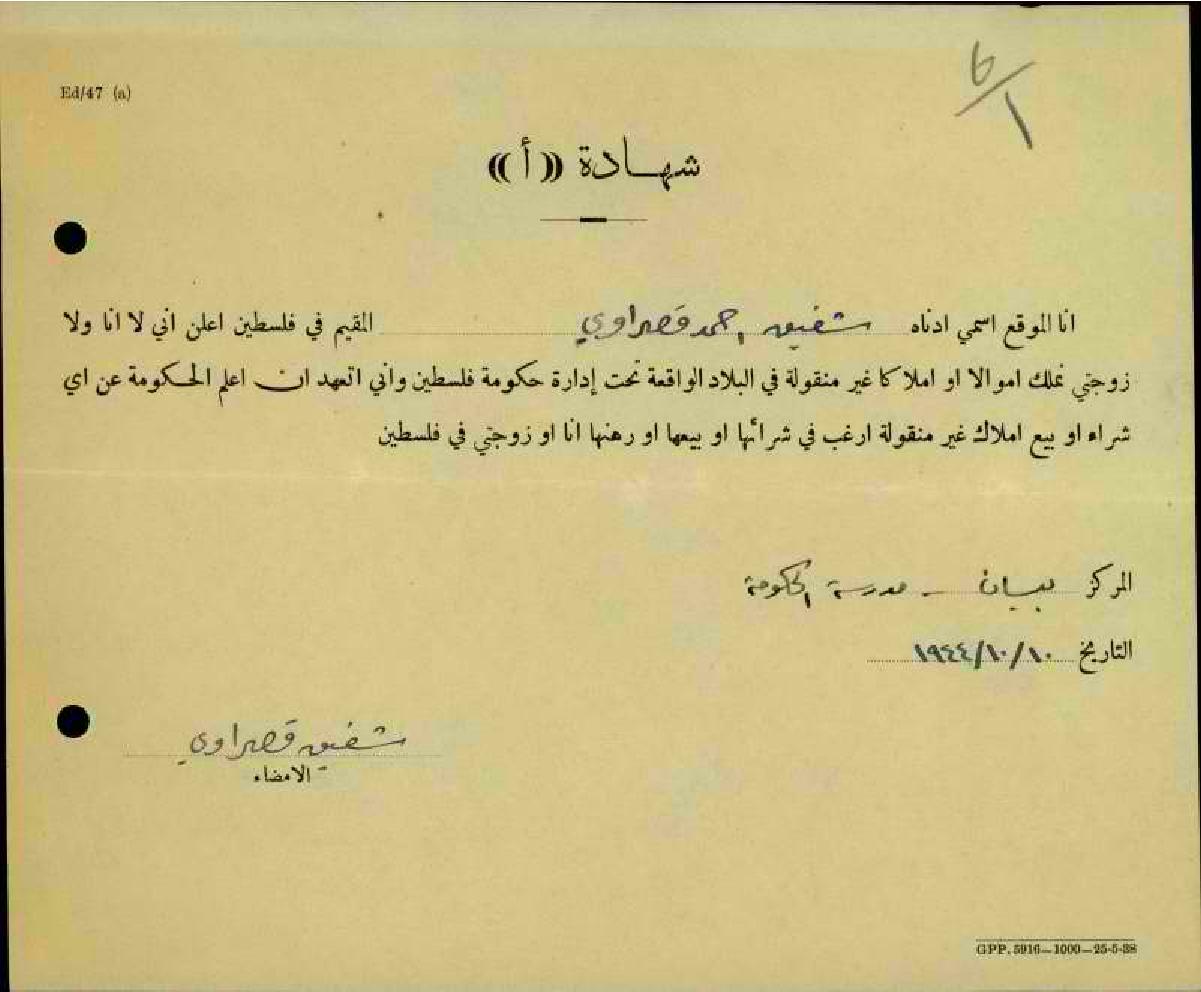 Ed/47 (a)
6/1
شهادة «أ»
انا الموقع اسمي ادناه شفيق احمد قصراوي المقيم في فلسطين اعلن اني لا انا ولا
زوجتي نملك اموالا او املاكا غير منقولة في البلاد الواقعة تحت إدارة حكومة فلسطين واني اتعهد ان اعلم الحكومة عن اي
شراء او بيع املاك غير منقولة ارغب في شرائها او بيعها او رهنها انا او زوجتي في فلسطين
المركز بيسان - مدرسة الحكومة
التاريخ ١٩٤٤/١٠/١٠
شفيق قصراوي
الامضاء
GPP. 5916—1000—25-5-38